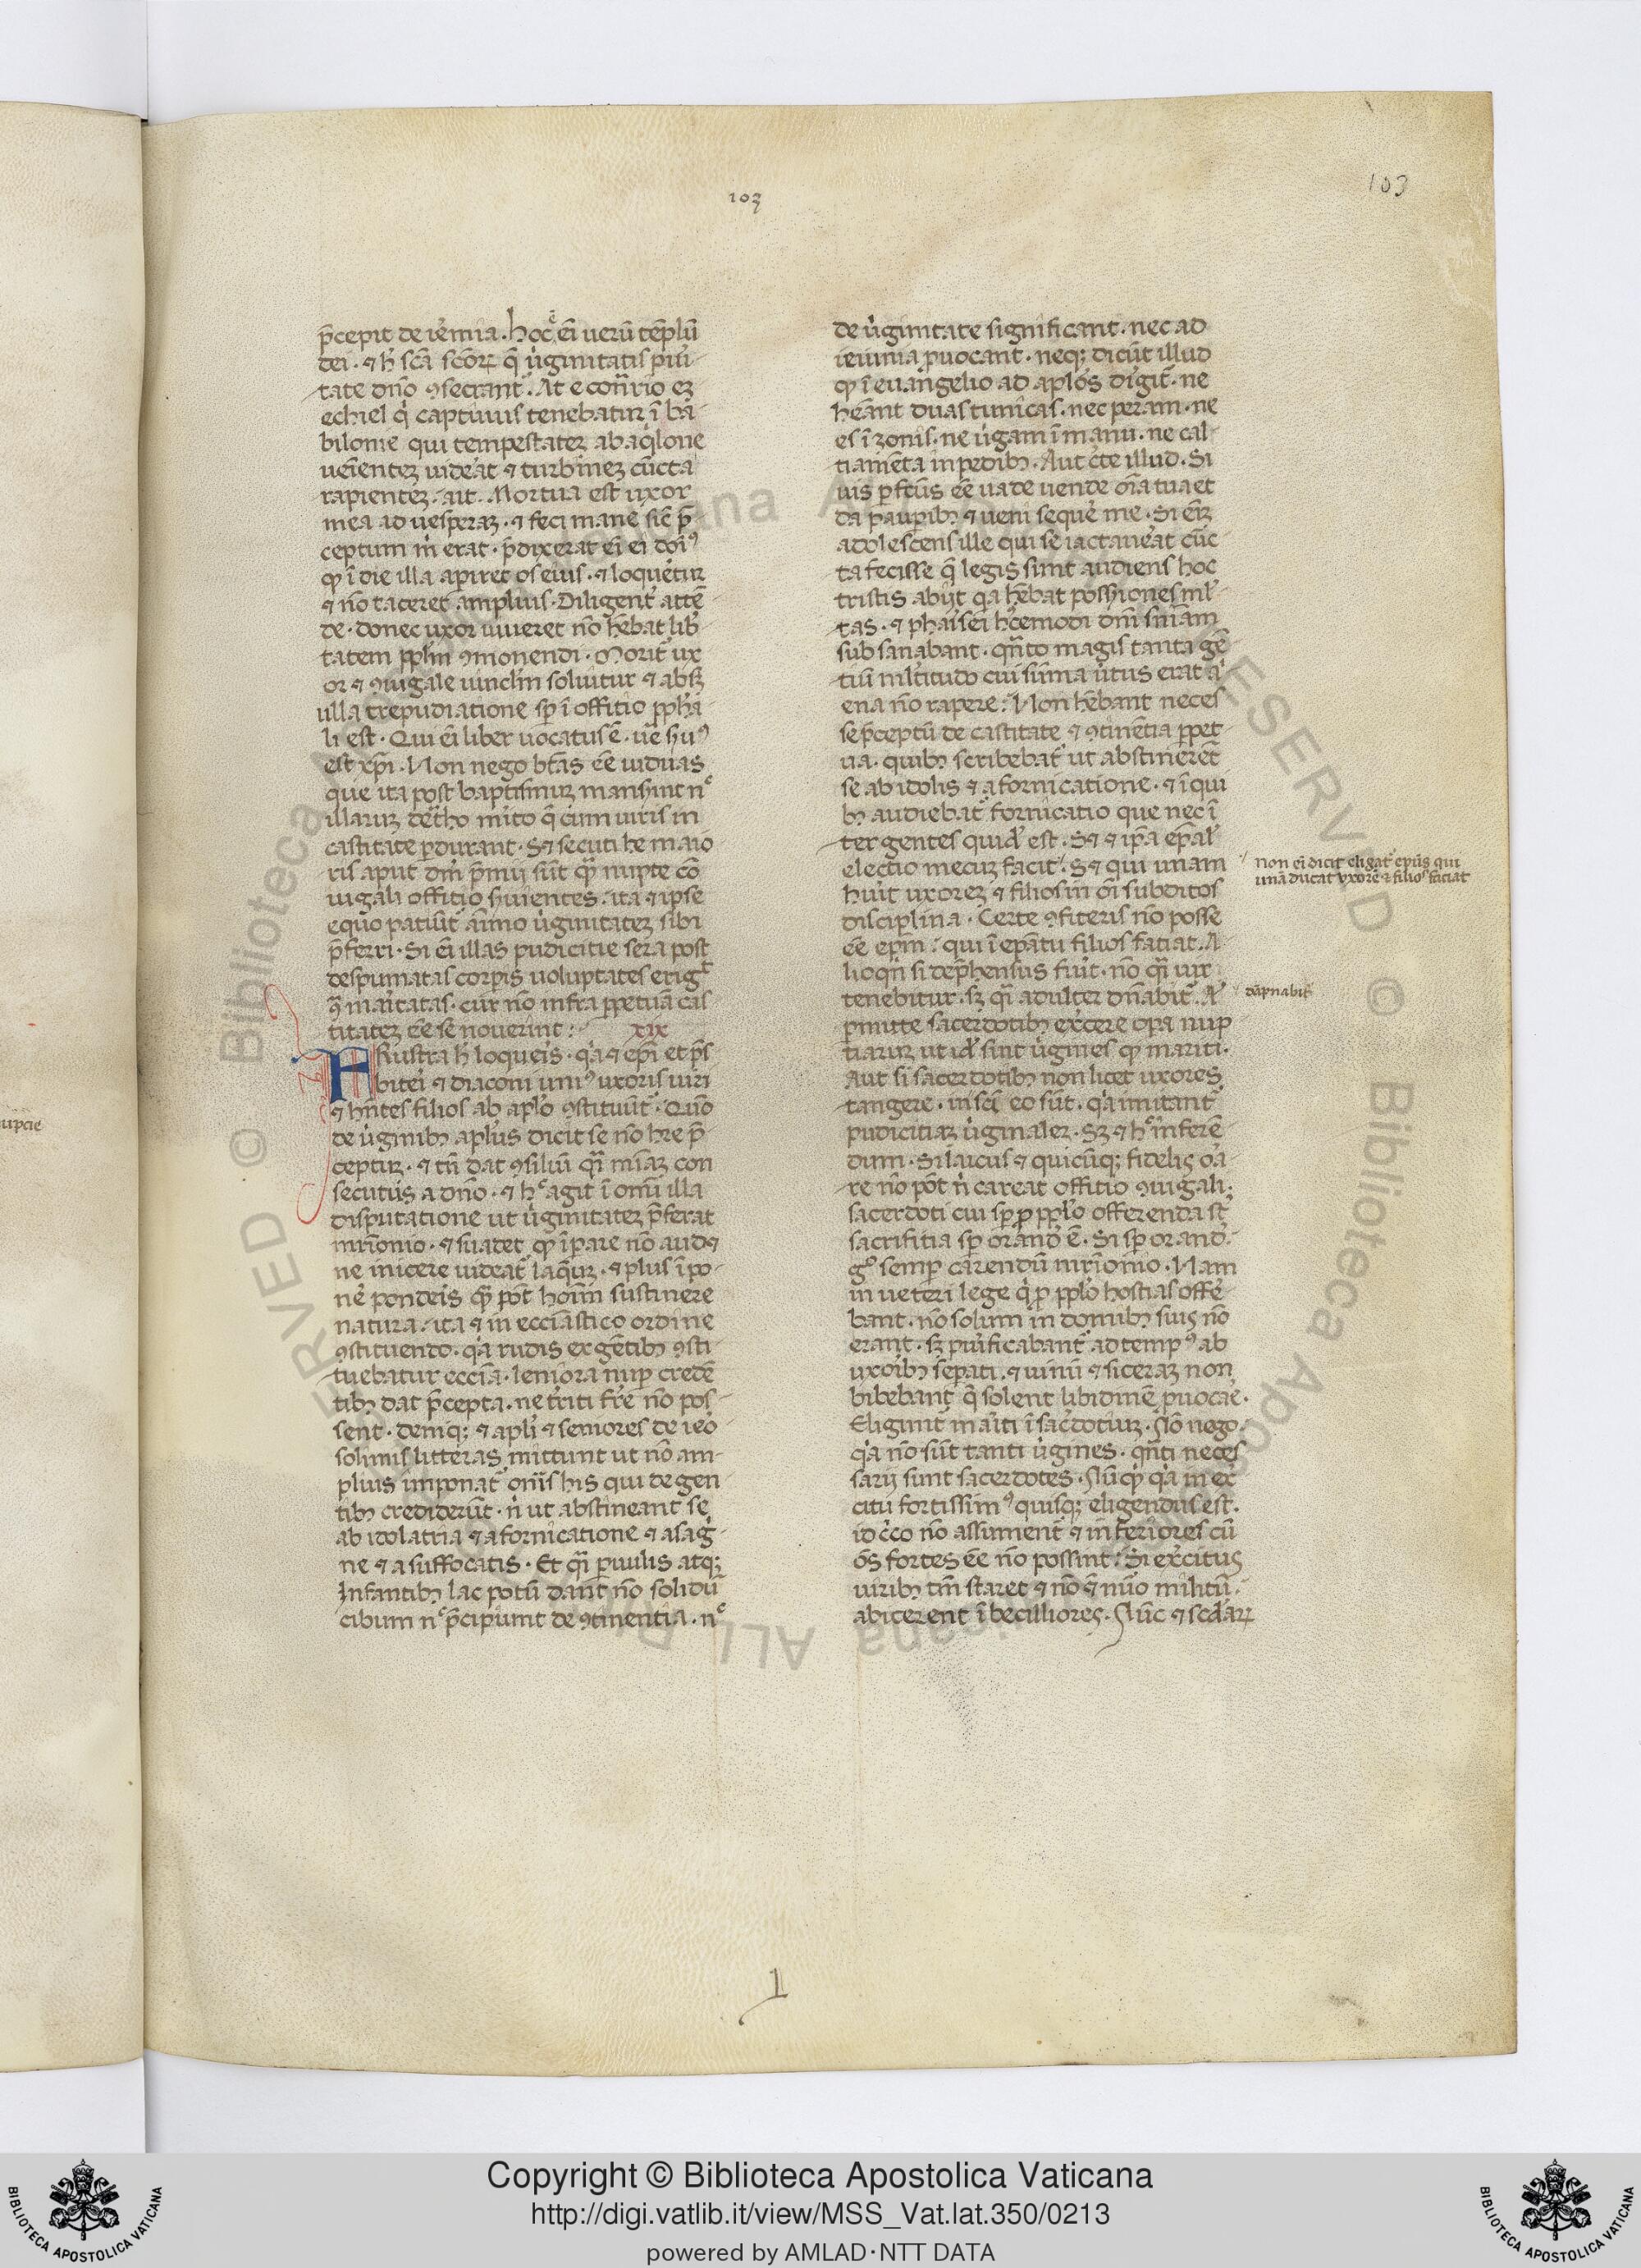 103
103
p̄cepit de ieremia. hoc ē ei uerū tēplū
dei. ⁊ h̄ scā scōꝝ q̄ uirginitatis puri
tate dn̄o ꝯsecrant᷑. At e cont̄rio eꝫ
echiel q̇ captiuus tenebatur ī ba
bilone qui tempestateꝫ ab aq̇lone
uenienteꝫ uideat ⁊ turbineꝫ cūcta
rapienteꝫ. ait. Mortua est uxor
mea ad uesperaꝫ. ⁊ feci mane sic̄ p̄
ceptum m̄ erat. p̄dixerat ei ei dn̄s
qꝫ ī die illa apiret os eius. ⁊ loqueretur
⁊ nō taceret amplius. Diligent᷑ attē
de. donec uxor uiueret nō hēbat lib̄
tatem pp̄lm ꝯmonendi. Morit᷑ ux
or ⁊ ꝯiugale uinclm soluitur ⁊ absqꝫ
ulla trepudiatione sp̄ ī offitio ppħa
li est. Qui ei liber uocatus ē. ue su᷒
est xp̄i. Non nego bt̄as ēe uiduas
que ita post baptismuꝫ manserint nᶜ
illaruꝫ det̄ho mīto q̄ cum uiris in
castitate ꝑdurant. Sꝫ secuti he maio
ris aput dm̄ p̄mij sūt qꝫ nupte cō
iugali offitio seruientes. ita ⁊ ipse
equo patiunt᷑ animo uirginitateꝫ sibi
p̄ferri. Si ei illas pudicitie sera post
despumatas corporis uoluptates erigit
ꝯ̄ maritatas. cur nō infra ꝑpetuā cas
titateꝫ ēe se nouerint: xix
Frustra h̄ loqueris. q̇a ⁊ ep̄i et p̄s
biteri ⁊ diaconi uni᷒ uxoris uiri
⁊ hn̄tes filios ab apl̄o ꝯstituūt᷑. Quō
de uirginibꝫ apl̄us dicit se nō hr̄e p̄
ceptuꝫ. ⁊ tn̄ dat ꝯsiliū qꝫ mīaꝫ con
secutus a dn̄o. ⁊ hᶜ agit ī omni illa
disputatione ut uirginitateꝫ p̄ferat
mr̄imonio. ⁊ suadet qꝫ īpare nō aud⁊
ne inicere uideat᷑ laq̄uꝫ. ⁊ plus īpo
nere ponderis qꝫ pōt hoīm sustinere
natura. ita ⁊ in ecclīastico ordine
ꝯstituendo. q̇a rudis ex gētibꝫ ꝯsti
tuebatur eccīa. leniora nuꝑ credē
tibꝫ dat p̄cepta. ne territi ferre nō pos
sent. deniqꝫ ⁊ apl̄i ⁊ seniores de iero
solimis litteras mittunt ut nō am
plius imponat᷑ oniīs his qui de gen
tibꝫ crediderūt. n̓ ut abstineant se
ab idolatria ⁊ a fornicatione ⁊ a sag
ne ⁊ a suffocatis. Et qꝫ ꝑuulis atqꝫ
Infantibꝫ lac potū dant nō solidū
cibum nᶜ p̄cipiunt de ꝯtinentia. nᶜ
de uirginitate significant. nec ad
ieiunia ꝓuocant. neqꝫ dicūt illud
qꝫ ī euangelio ad apl̄os dirigit᷑. ne
heant duas tunicas. nec peram. ne
es ī zonis. ne uirgam ī manu. ne cal
tiamēta in pedibꝫ. Aut c̄te illud. Si
uis ꝑfectus ēe uade uende oīa tua et
da pauꝑibꝫ ⁊ ueni sequere me. Si eīꝫ
adolescens ille qui se iactauerat cūc
ta fecisse q̄ legis sunt audiens hoc
tristis abijt q̇a hēbat possessiones ml̄
tas. ⁊ pharisei hꝰcemodi dn̄i sniam
subsanabant. qn̄to magis tanta gē
tiū ml̄titudo cui suma uirtus erat a
liena nō rapere: Non hēbant neces
se p̄ceptū de castitate ⁊ ꝯtinētia ꝑpet
ua. quibꝫ scribebat᷑ ut abstinerēt
se ab idolis ⁊ a fornicatione. ⁊ ī qui
bꝫ audiebat᷑ fornicatio que nec ī
ter gentes quidē est. Sꝫ ⁊ ip̄a ep̄al̄
electio mecuꝫ facit. Sꝫ qui unam
huerit uxoreꝫ ⁊ filios in oī subditos
disciplina. Certe ꝯfiteris nō posse
ēe ep̄m: qui ī ep̄atu filios fatiat. A
lioqn̄ si dep̄hensus fuerit. nō qꝫ uir
tenebitur. sꝫ qꝫ adulter dn̄abit᷑. A
ꝑmitte sacerdotibꝫ exercere opa nup
tiaruꝫ ut idē sint uirgines qꝫ mariti.
Aut si sacerdotibꝫ non licet uxores
tangere. in sci eo sūt. q̇a imitant᷑
pudicitiaꝫ uirginaleꝫ. Sꝫ ⁊ hᶜ inferē
dum. Si laicus ⁊ quicūqꝫ fidelis ora
re nō pōt n̓ careat offitio ꝯiugali.
sacerdoti cui sp̄ ꝓ pp̄lo offerenda st̄
sacrifitia sp̄ orand̄ ē. Si sp̄ orand̄.
gᵒ semꝑ carendū mr̄imonio. Nam
in ueteri lege q̇ ꝓ pp̄lo hostias offe
bant. nō solum in domibꝫ suis nō
erant. sꝫ purificabant᷑ ad temp᷒ ab
uxoribꝫ seꝑati. ⁊ uinū ⁊ siceraꝫ non
bibebant q̄ solent libidinē ꝓuocare.
Eligunt᷑ mariti ī sac̄dotiuꝫ. Nō nego.
q̇a nō sūt tanti uirgines. qn̄ti neces
sarij sunt sacerdotes. Nūqꝫ q̇a in ex̄
citu fortissim᷒ quisqꝫ eligendus est.
idc̄co nō assument᷑ ⁊ inferiores cū
ōs fortes ēe nō possint: Si ex̄citus
uiribꝫ tm̄ staret ⁊ nō ⁊ nūo militū.
abicerent᷑ ībecilliores. Nūc ⁊ scd̄arꝝ
non ei dicit eligat᷑ epūs qui
unā ducat uxorē ⁊ filios faciat
dāpnabit᷑
upcie
1
Copyright © Biblioteca Apostolica Vaticana
http://digi.vatlib.it/view/MSS_Vat.lat.350/0213
powered by AMLAD·NTT DATA
BIBLIOTECA APOSTOLICA VATICANA
BIBLIOTECA APOSTOLICA VATICANA